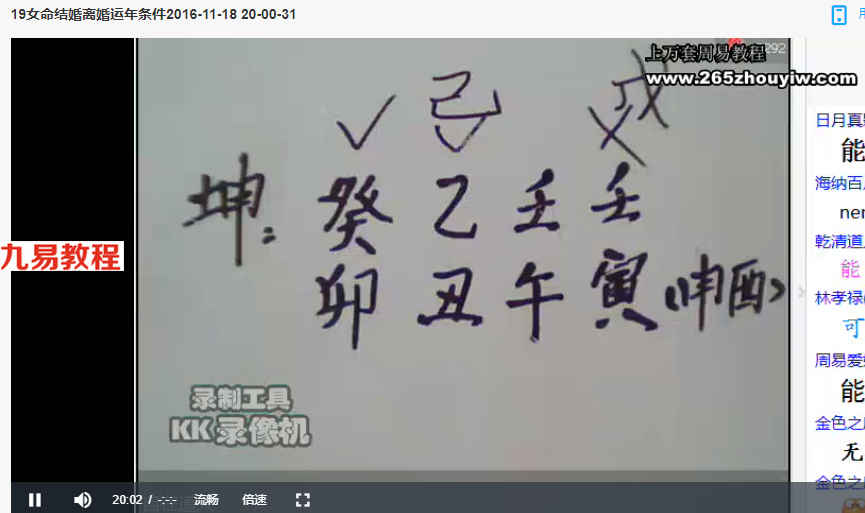 19女命结婚离婚运年条件2016-11-18 20-00-31
292
上万套周易教程
www.265zhouyiw.com
己 戌
坤: 癸 乙 壬 壬
卯 丑 午 寅 (申酉)
九易教程
录制工具
KK 录像机
日月真
能
海纳百
ner
乾清道
能
林孝禄
可
周易爱
能
金色之
无
金色之
20:02 / -:-:- 流畅 倍速